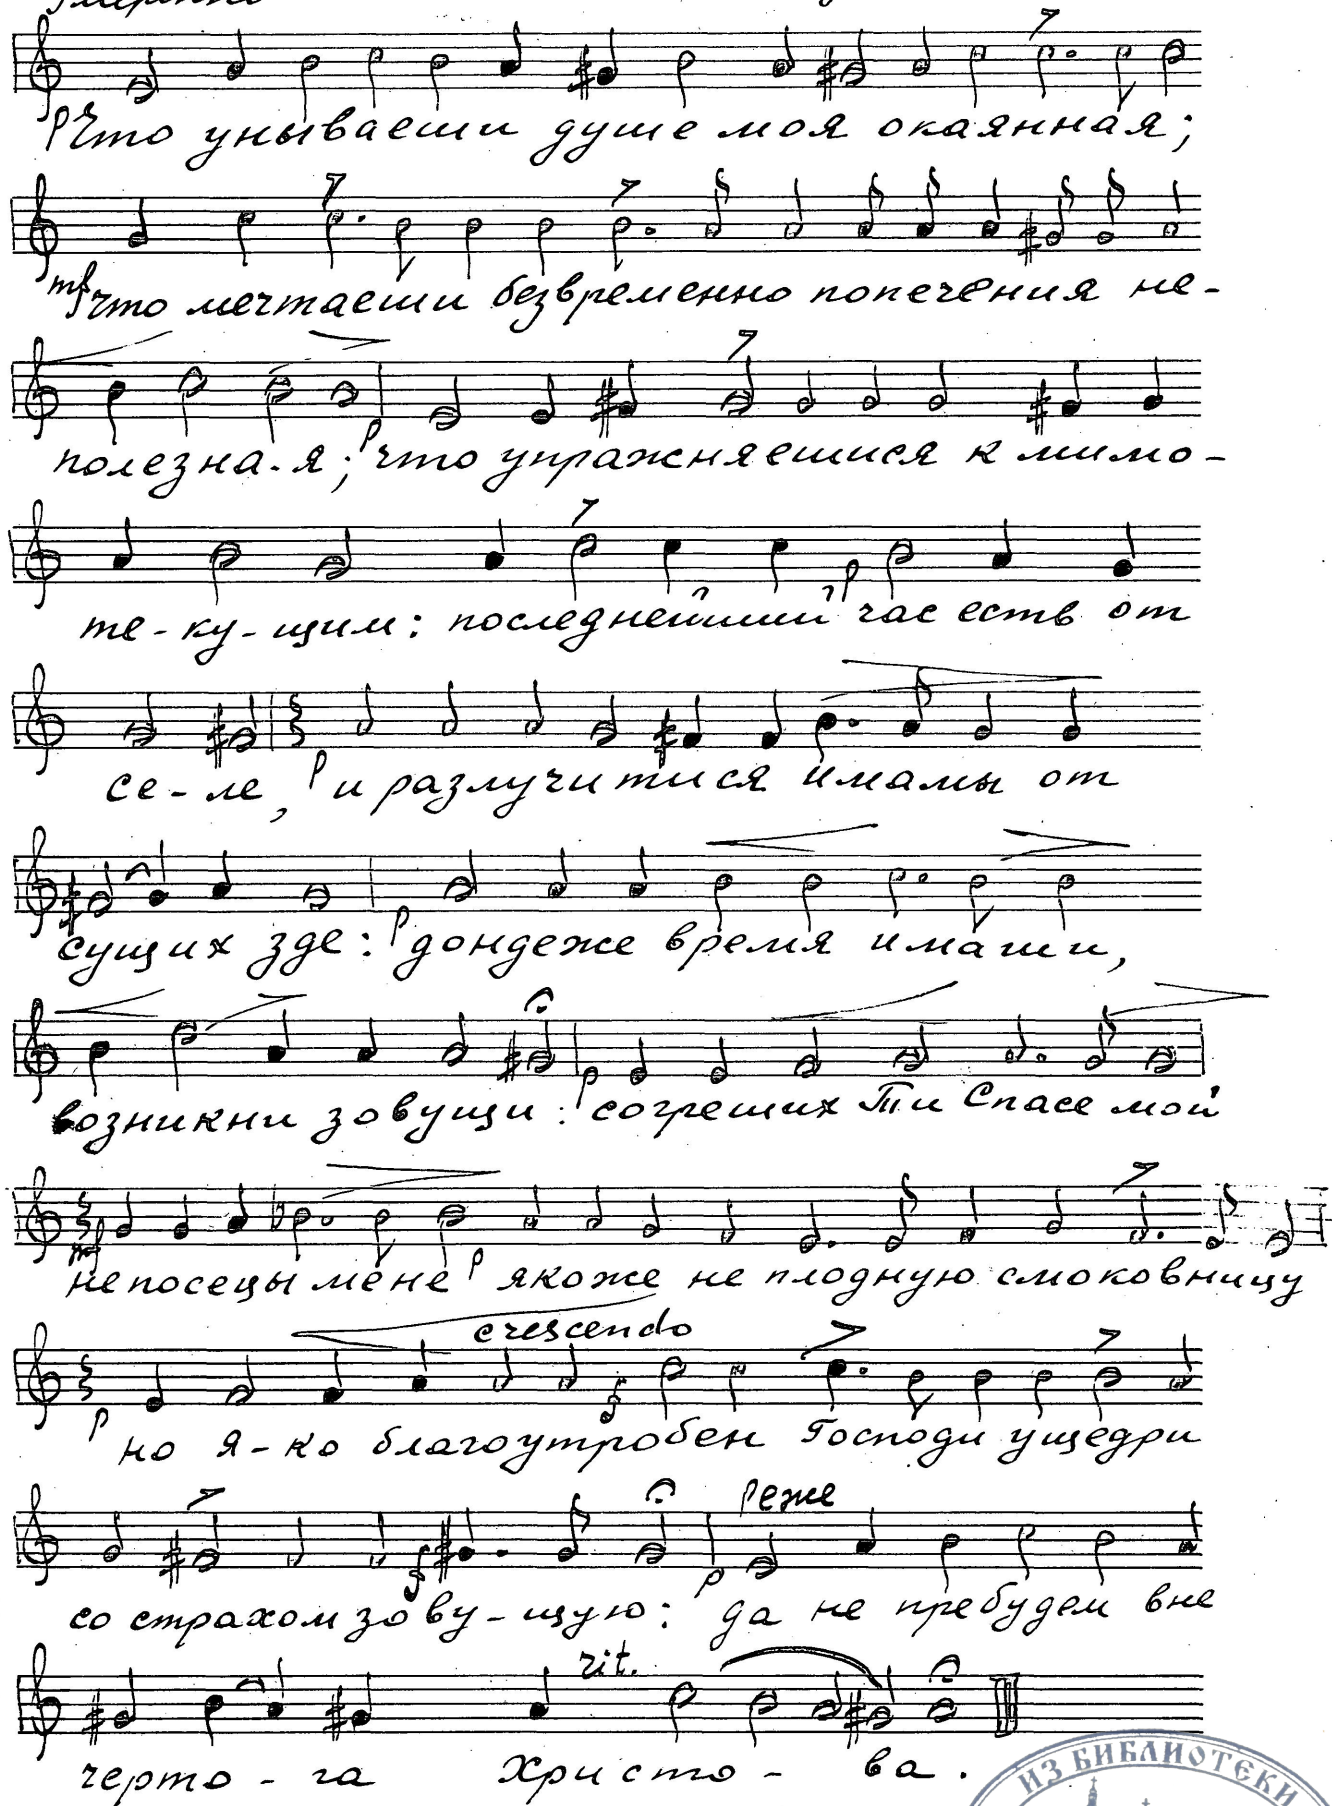 Что унываеши душе моя окаянная;
mf что мечтаеши безвременно попечения не-
полезна-я; p что упражняешися к мимо-
те-ку-щим: последнейший p час есть от
се-ле, p и разлучитися имамы от
сущих зде: p дондеже время имаши,
возникни зовущи: p согреших Ти Спасе мой
mf не посецы мене p якоже не плодную смоковницу
crescendo
p но я-ко благоутробен f Господи ущедри
реже
со страхом f зову-щую: p да не пребудем вне
rit.
черто-га Христо-ва.
ИЗ БИБЛИОТЕКИ